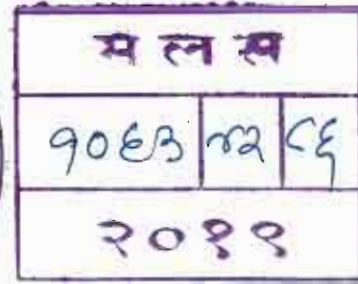 म ल स
१०६३ ४२ ८६
२०१९